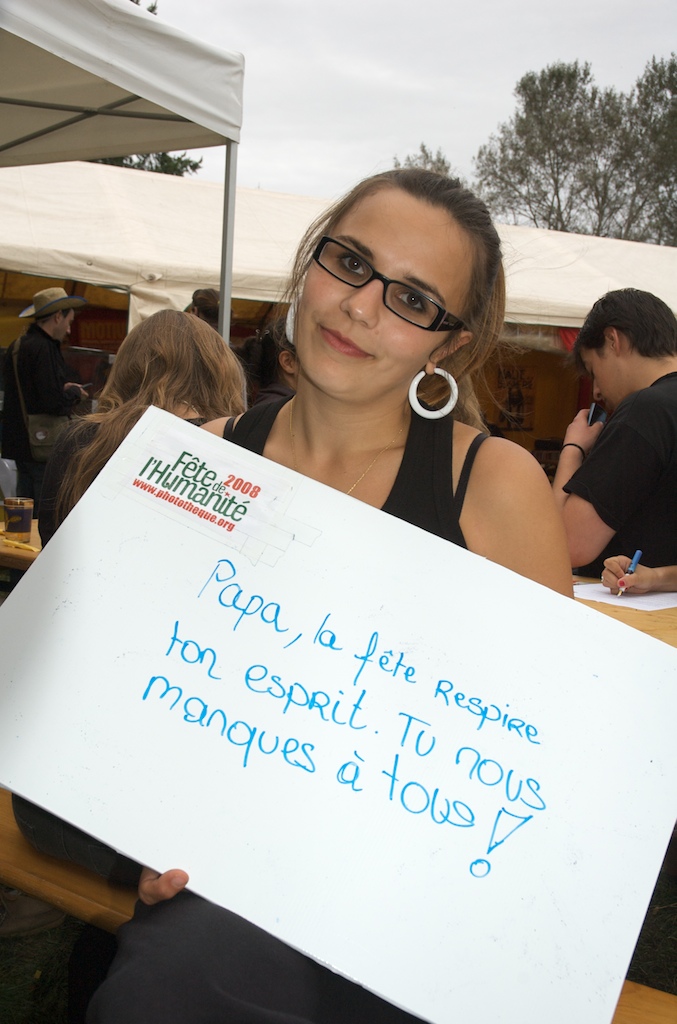 Fête
de
2008
l'Humanité
www.phototheque.org
Papa, la fête respire
ton esprit. Tu nous
manques à tous !